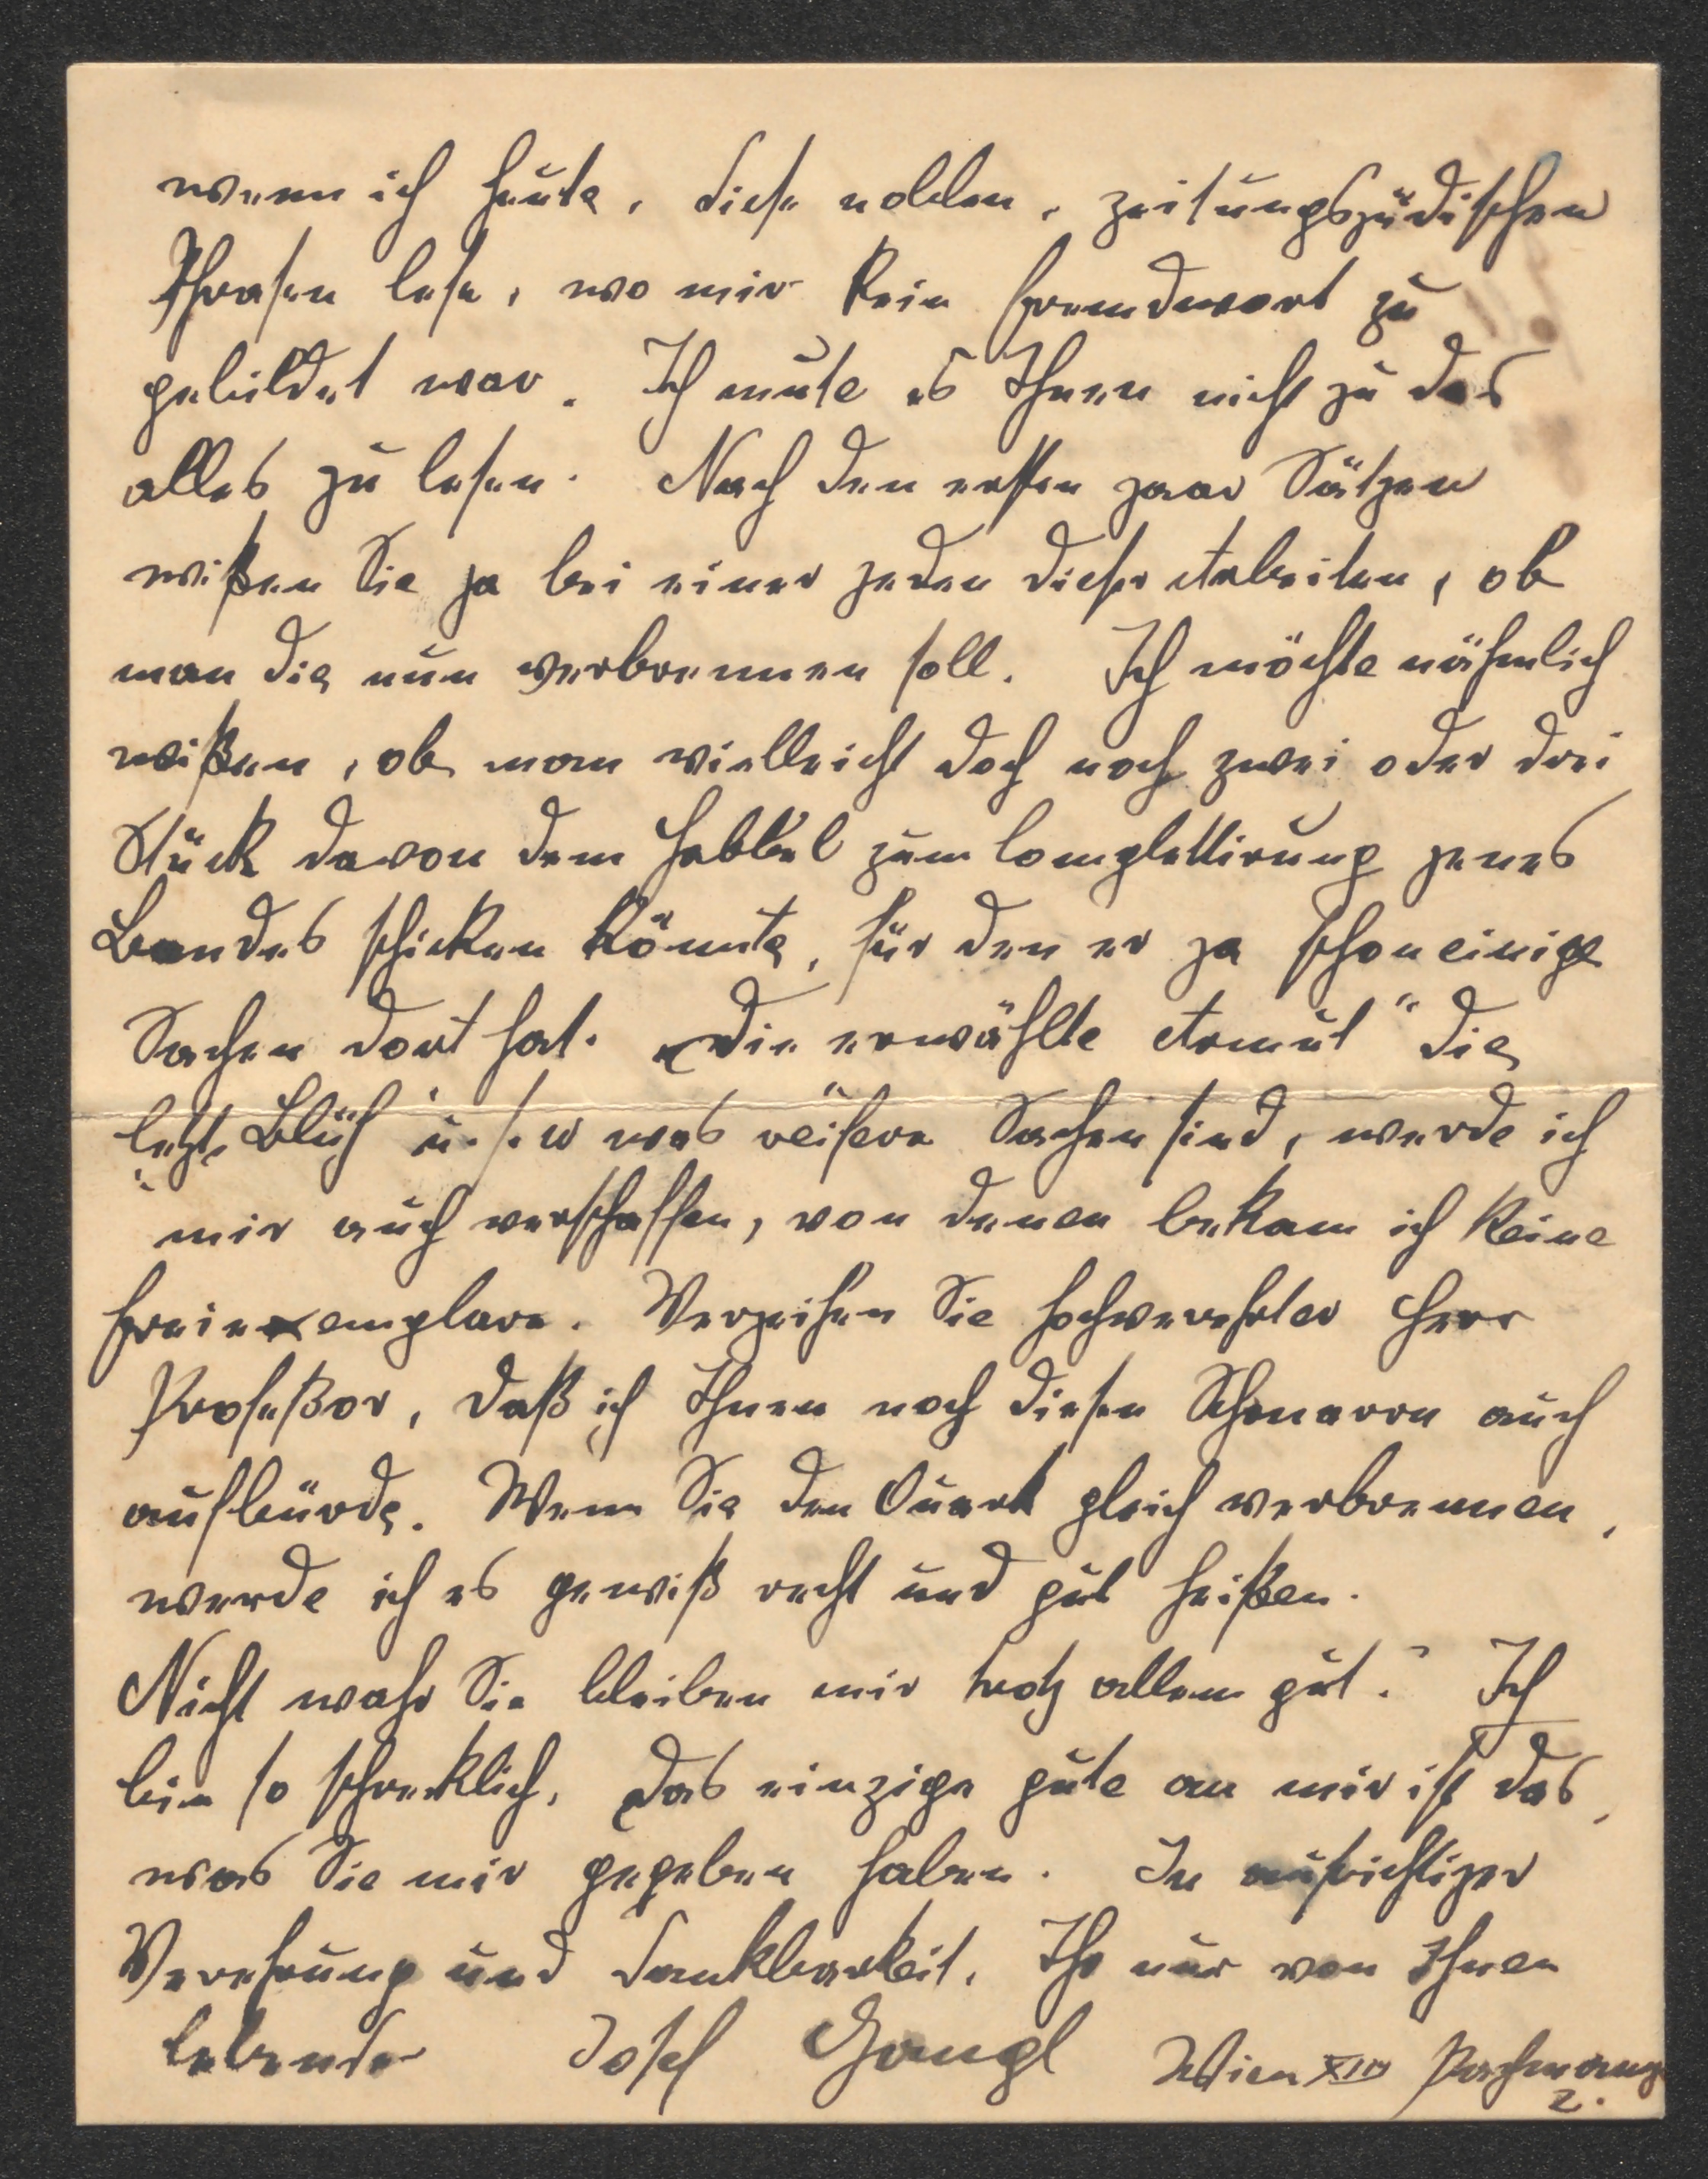 wenn ich heute, diese noblen, zeitungsjüdischen
Phrasen lese, wo mir kein Fremdwort zu
gebildet war. Ich mute es Ihnen nicht zu das
alles zu lesen. Nach den ersten paar Sätzen
wißen Sie ja bei einer jeden dieser Arbeiten, ob
man die nun verbrennen soll. Ich möchte nähmlich
wißen, ob man vielleicht doch noch zwei oder drei
Stück davon dem Habbel zum Complettirung jenes
Bandes schicken könnte, für den er ja schon einige
Sachen dort hat. „Die erwählte Armut" die
„letzte Blüh" u. s. w was reifere Sachen sind, werde ich
mir auch verschaffen, von denen bekam ich keine
Freiexemplare. Verzeihen Sie hochverehrter Herr
Profeßor, daß ich Ihnen noch diesen auch
aufbürde. Wenn Sie den Quark gleich verbrennen,
werde ich es gewiß recht und gut heißen.
Nicht wahr Sie bleiben mir trotz allem gut? Ich
bin so schrecklich. Das einzige gute an mir ist das,
was Sie mir gegeben haben. In aufrichtiger
Verehrung und Dankbarkeit. Ihr nur von Ihnen
lebender Josef Gangl Wien XIII
2.